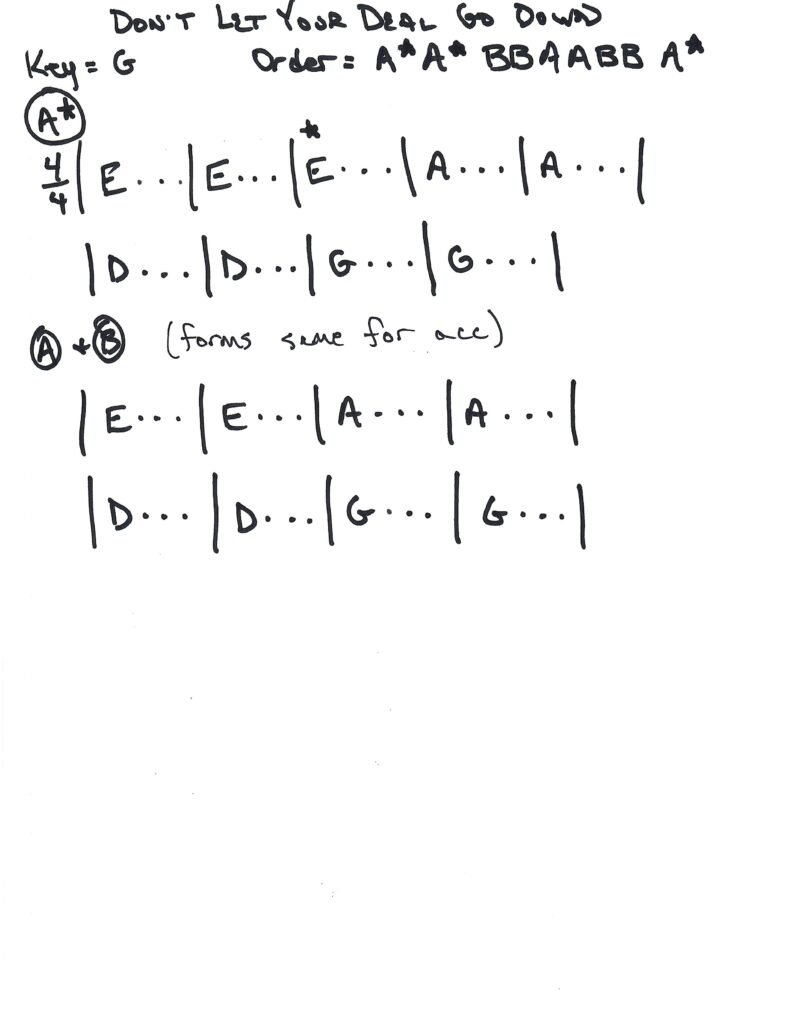 DON'T LET YOUR DEAL GO DOWN
Key = G Order = A* A* BBAABB A*
A*
*
4/4 | E... | E... | E... | A... | A... |
| D... | D... | G... | G... |
A + B (forms same for acc)
| E... | E... | A... | A... |
| D... | D... | G... | G... |